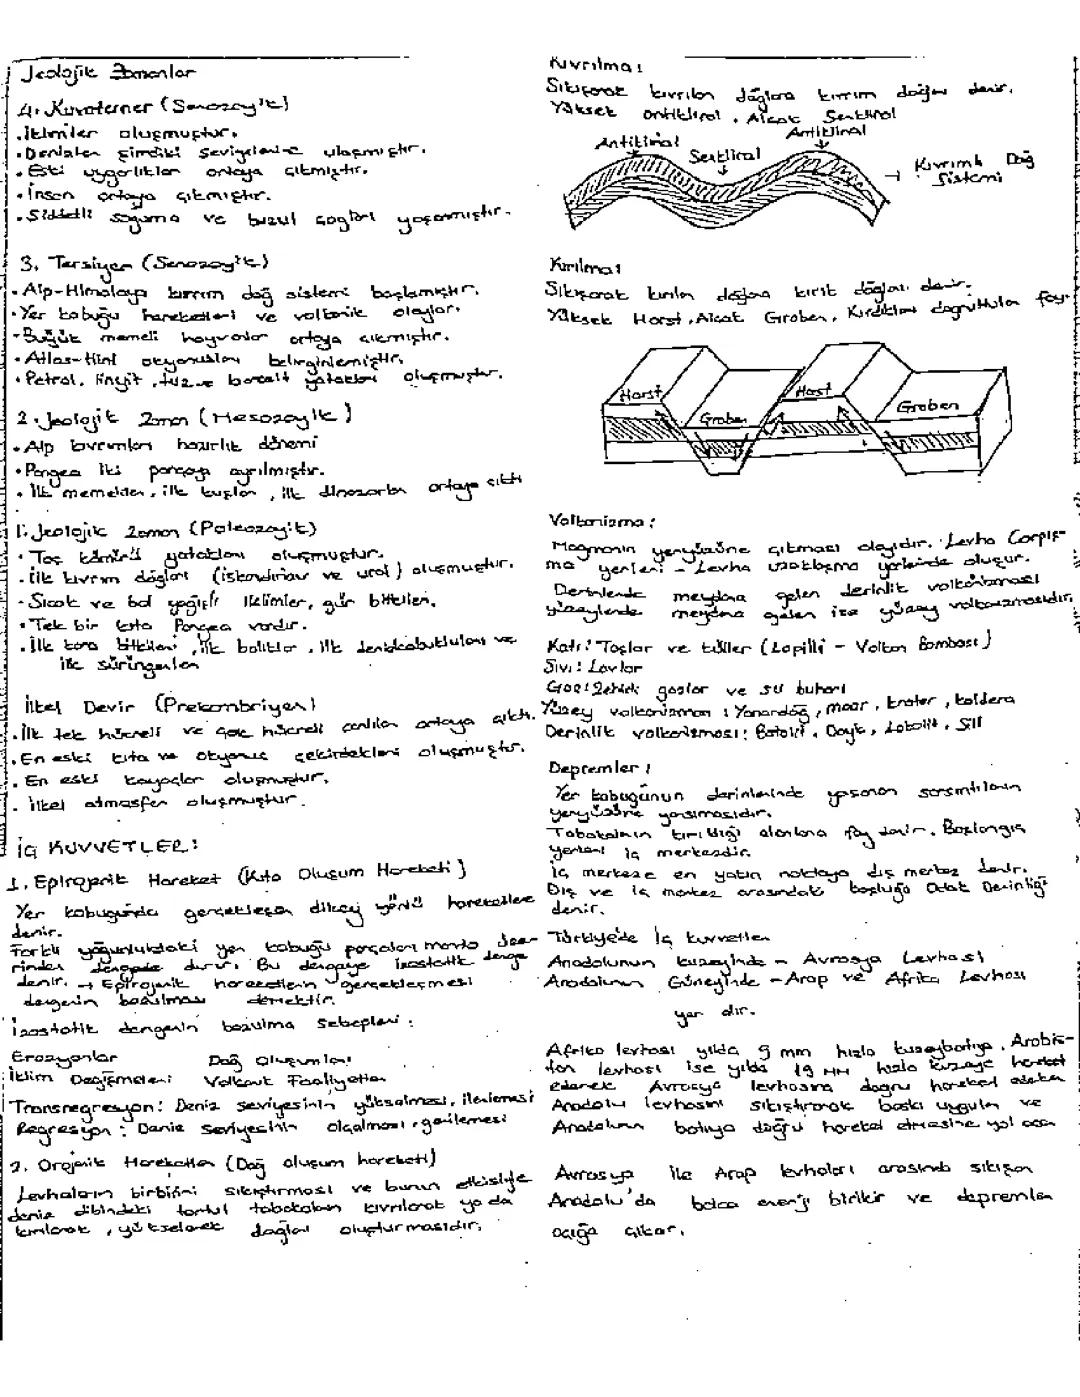 Jeolojik Zamanlar
4. Kuvaterner (Senozoyik)
• İklimler oluşmuştur.
• Denizler şimdiki seviyelerine ulaşmıştır.
• Eski uygarlıklar ortaya çıkmıştır.
• İnsan ortaya çıkmıştır.
• Şiddetli soğuma ve buzul çağları yaşanmıştır.
3. Tersiyer (Senozoyik)
• Alp-Himalaya kıvrım dağ sistemi başlamıştır.
• Yer kabuğu hareketleri ve volkanik olaylar.
• Büyük memeli hayvanlar ortaya çıkmıştır.
• Atlas-Hint okyanusları belirginleşmiştir.
• Petrol, linyit, tuz ve boraks yatakları oluşmuştur.
2. Jeolojik Zaman (Mesozoyik)
• Alp kıvrımları hazırlık dönemi
• Pangea iki parçaya ayrılmıştır.
• İlk memeliler, ilk kuşlar, ilk dinozorlar ortaya çıktı
1. Jeolojik Zaman (Paleozoyik)
• Taş kömürü yatakları oluşmuştur.
• İlk kıvrım dağları (iskandinav ve ural) oluşmuştur.
• Sıcak ve bol yağışlı iklimler, gür bitkiler.
• Tek bir kıta Pangea vardır.
• İlk kara bitkileri, ilk balıklar, ilk denizkabukluları ve
ilk sürüngenler
İlkel Devir (Prekambriyen)
• İlk tek hücreli ve çok hücreli canlılar ortaya çıktı.
• En eski kıta ve okyanus çekirdekleri oluşmuştur.
• En eski kayaçlar oluşmuştur.
• İlkel atmosfer oluşmuştur.
İÇ KUVVETLER:
1. Epirojenik Hareket (Kıta Oluşum Hareketi)
Yer kabuğunda gerçekleşen dikey yönlü hareketlere
denir.
Farklı yoğunluktaki yer kabuğu parçaları manto üzerinde
dengede durur. Bu dengeye izostatik denge
denir. → Epirojenik hareketlerin gerçekleşmesi
dengenin bozulması demektir.
İzostatik dengenin bozulma sebepleri:
Erozyonlar Dağ Oluşumları
İklim Değişmeleri Volkanik Faaliyetler
Transregresyon: Deniz seviyesinin yükselmesi, ilerlemesi
Regresyon: Deniz seviyesinin alçalması, gerilemesi
2. Orojenik Hareketler (Dağ oluşum hareketi)
Levhaların birbirini sıkıştırması ve bunun etkisiyle
deniz dibindeki tortul tabakaların kıvrılarak ya da
kırılarak, yükselerek dağları oluşturmasıdır.
Kıvrılma:
Sıkışarak kıvrılan dağlara kıvrım dağları denir.
Yüksek antiklinal, Alçak Senklinal
Antiklinal Senklinal Antiklinal
→ Kıvrımlı Dağ
Sistemi
Kırılma:
Sıkışarak kırılan dağlara kırık dağları denir.
Yüksek Horst, Alçak Graben, Kırdıkları doğrultular fay
Horst Graben Horst Graben
Volkanizma:
Magmanın yeryüzüne çıkması olayıdır. Levha Çarpış-
ma yerleri - Levha uzaklaşma yerlerinde oluşur.
Derinlerde meydana gelen derinlik volkanizması
yüzeylerde meydana gelen ise yüzey volkanizmasıdır.
Katı: Taşlar ve küller (Lapilli - Volkan Bombası)
Sıvı: Lavlar
Gaz: Zehirli gazlar ve su buharı
Yüzey volkanizması: Yanardağ, maar, krater, kaldera
Derinlik volkanizması: Batolit, Dayk, Lakolit, Sill
Depremler:
Yer kabuğunun derinlerinde yaşanan sarsıntıların
yeryüzüne yansımasıdır.
Tabakaların kırıldığı alanlara fay denir. Başlangıç
yerleri iç merkezdir.
İç merkeze en yakın noktaya dış merkez denir.
Dış ve iç merkez arasındaki boşluğa Odak Derinliği
denir.
Türkiye'de İç kuvvetler
Anadolunun kuzeyinde - Avrasya Levhası
Anadolunun Güneyinde - Arap ve Afrika Levhası
yer alır.
Afrika levhası yılda 9 mm hızla kuzeybatıya, Arabis-
tan levhası ise yılda 19 mm hızla kuzeye hareket
ederek Avrasya levhasına doğru hareket ederken
Anadolu levhasını sıkıştırarak baskı uygular ve
Anadolunun batıya doğru hareket etmesine yol açar
Avrasya ile Arap levhaları arasında sıkışan
Anadolu'da bolca enerji birikir ve depremler
açığa çıkar.